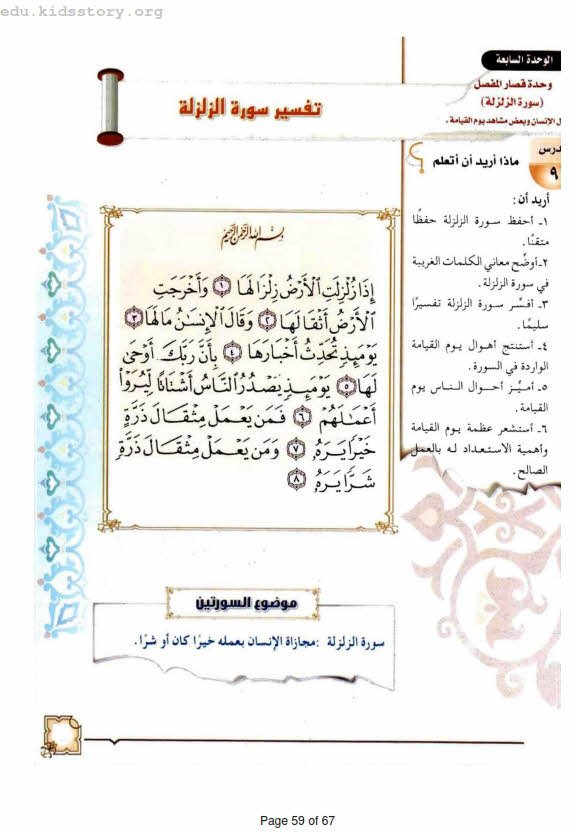 edu.kidsstory.org
الوحدة السابعة
وحدة قصار المفصل
(سورة الزلزلة)
ل الإنسان وبعض مشاهد يوم القيامة .
تفسير سورة الزلزلة
درس
٩
ماذا أريد أن أتعلم
؟
أريد أن:
١ـ أحفظ سورة الزلزلة حفظًا
متقنًا.
٢ـ أوضّح معاني الكلمات الغريبة
في سورة الزلزلة.
٣ـ أفسِّر سورة الزلزلة تفسيرًا
سليمًا.
٤ـ أستنتج أهوال يوم القيامة
الواردة في السورة.
٥ـ أميِّز أحوال الناس يوم
القيامة.
٦ـ أستشعر عظمة يوم القيامة
وأهمية الاستعداد له بالعمل
الصالح.
بِسْمِ اللَّهِ الرَّحْمَنِ الرَّحِيمِ
إِذَا زُلْزِلَتِ ٱلْأَرْضُ زِلْزَالَهَا ١ وَأَخْرَجَتِ
ٱلْأَرْضُ أَثْقَالَهَا ٢ وَقَالَ ٱلْإِنسَٰنُ مَا لَهَا ٣
يَوْمَئِذٍ تُحَدِّثُ أَخْبَارَهَا ٤ بِأَنَّ رَبَّكَ أَوْحَىٰ
لَهَا ٥ يَوْمَئِذٍ يَصْدُرُ ٱلنَّاسُ أَشْتَاتًا لِّيُرَوْا۟
أَعْمَٰلَهُمْ ٦ فَمَن يَعْمَلْ مِثْقَالَ ذَرَّةٍ
خَيْرًا يَرَهُۥ ٧ وَمَن يَعْمَلْ مِثْقَالَ ذَرَّةٍ
شَرًّا يَرَهُۥ ٨
موضوع السورتين
سورة الزلزلة :مجازاة الإنسان بعمله خيرًا كان أو شرًا.
Page 59 of 67